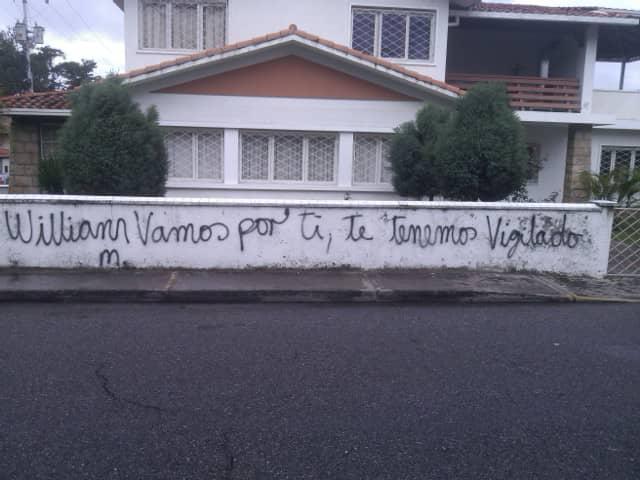 William Vamos por ti, te tenemos Vigilado
m.